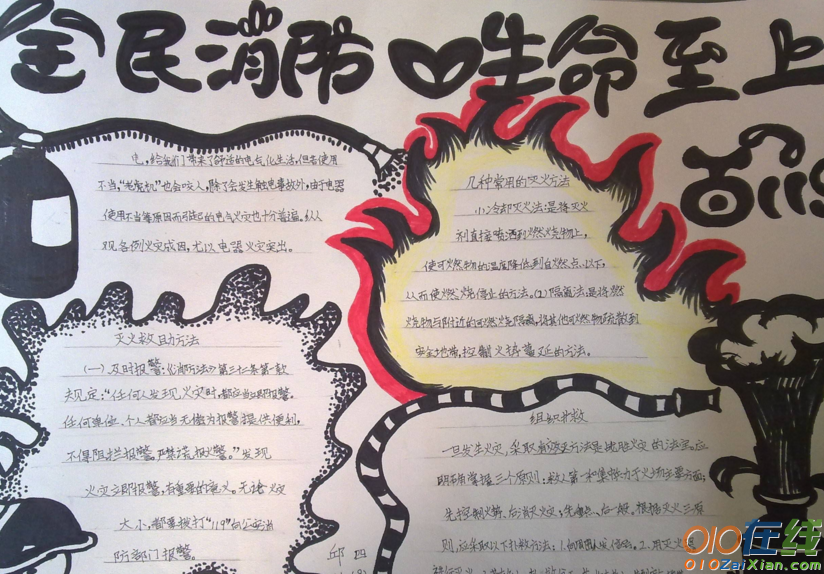 全民消防 生命至上
电,给我们带来了舒适的电气化生活,但若使用
不当,“老虎机”也会咬人,除了会发生触电事故外,由于电器
使用不当等原因而引起的电气火灾也十分普遍。从
观各例火灾成因,尤以电器火灾突出。
几种常用的灭火方法
冷却灭火法:是将灭火
剂直接喷洒到燃烧物上,
使可燃物的温度降低到自燃点以下,
从而使燃烧停止的方法。(2)隔离法:是将燃
烧物与附近的可燃烧隔离或将其他可燃物疏散到
安全地带,控制火势蔓延的方法。
灭火救助方法
(一)及时报警:《消防法》第三十二条第一款
规定:“任何人发现火灾时,都应当立即报警。
任何单位、个人都应当无偿为报警提供便利,
不得阻拦报警。严禁谎报火警。”发现
火灾立即报警,有重要的意义。无论火灾
大小,都要拨打“119”向公安消
防部门报警。
组织扑救
一旦发生火灾,采取
明确掌握三个原则:救人第一和集中力于火场主要方面;
先控制火
则,应采取以下扑救方法:1.
邱 四
010在线
010ZaiXian.com